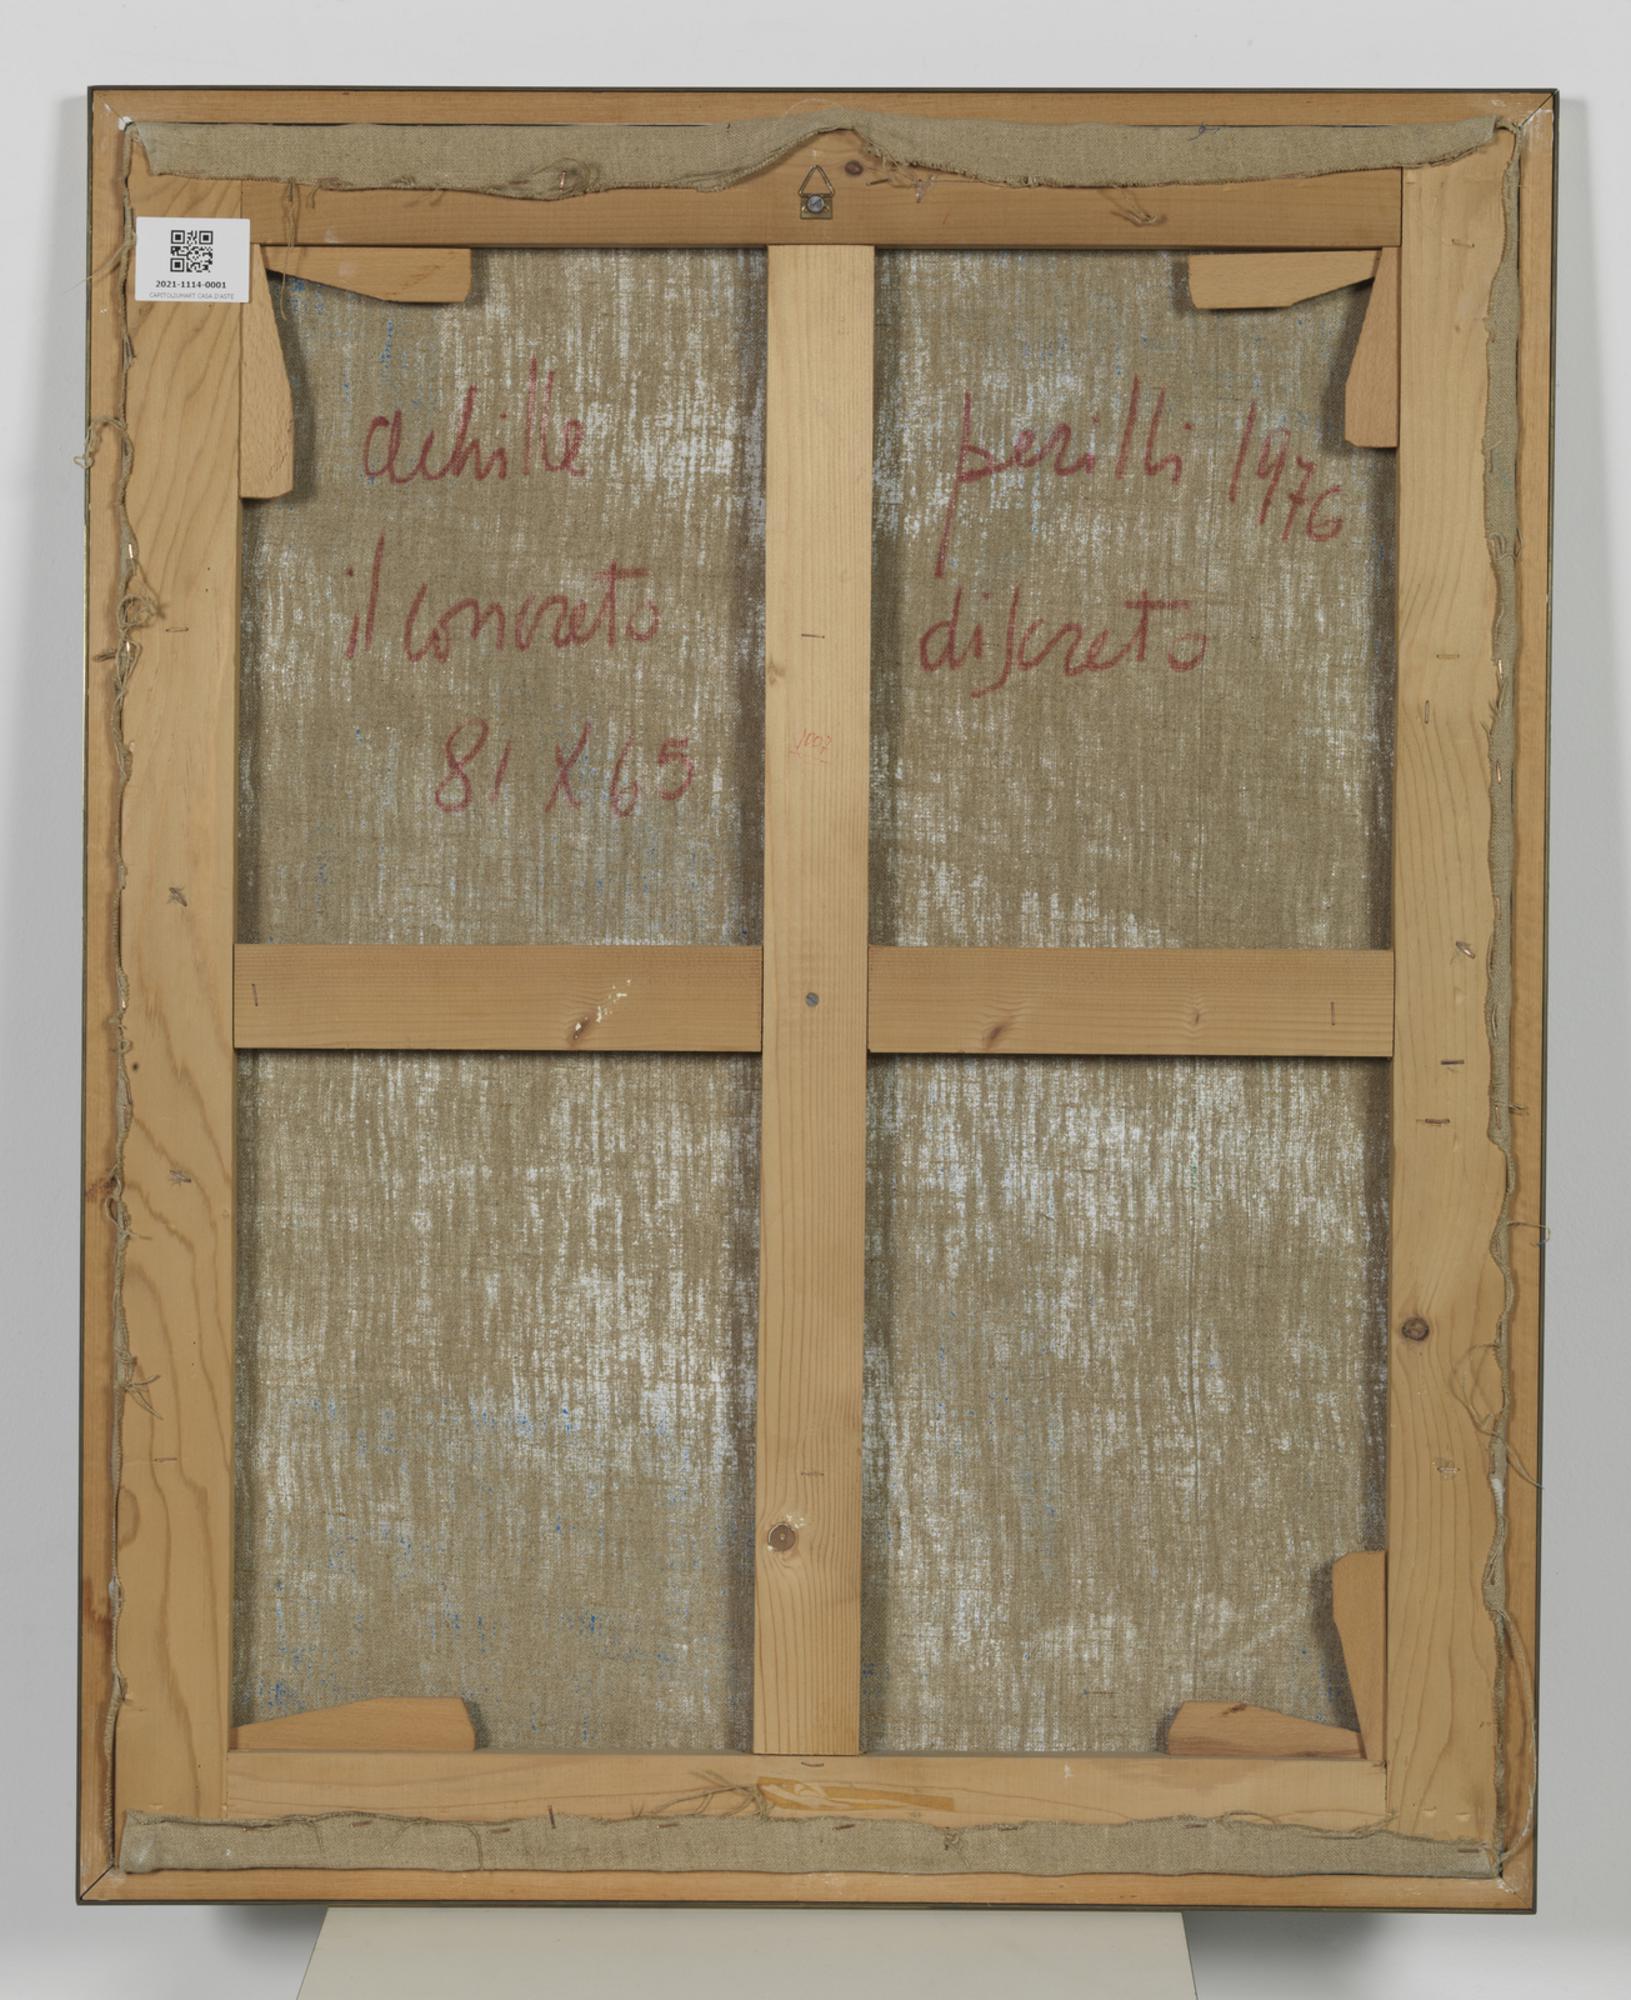 2021-1114-0001
CAPITOLIUMART CASA D'ASTE
achille perilli 1976
il concreto discreto
81 X 65
1007